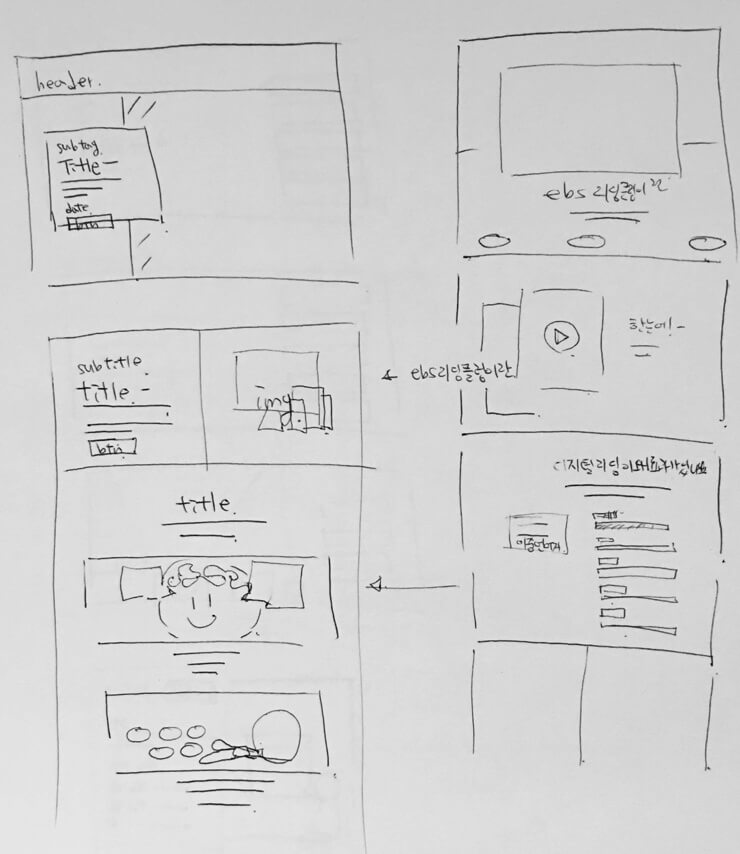 header.
subtag
Title
date
btn
subtitle
title
btn
img
title
ebs 리딩클럽이란
한눈에!
← ebs리딩클럽이란
디지털리딩이